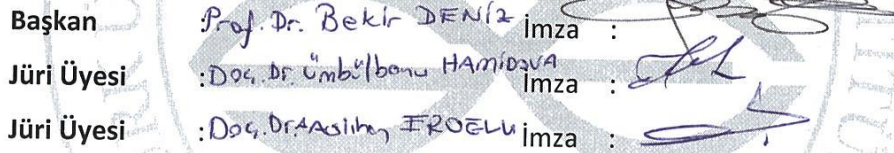 Başkan Prof. Dr. Bekir DENİZ İmza :
Jüri Üyesi :Doç. Dr. Ümbülbanu HAMİDOVA İmza :
Jüri Üyesi :Doç. Dr. Aslıhan EROĞLU İmza :